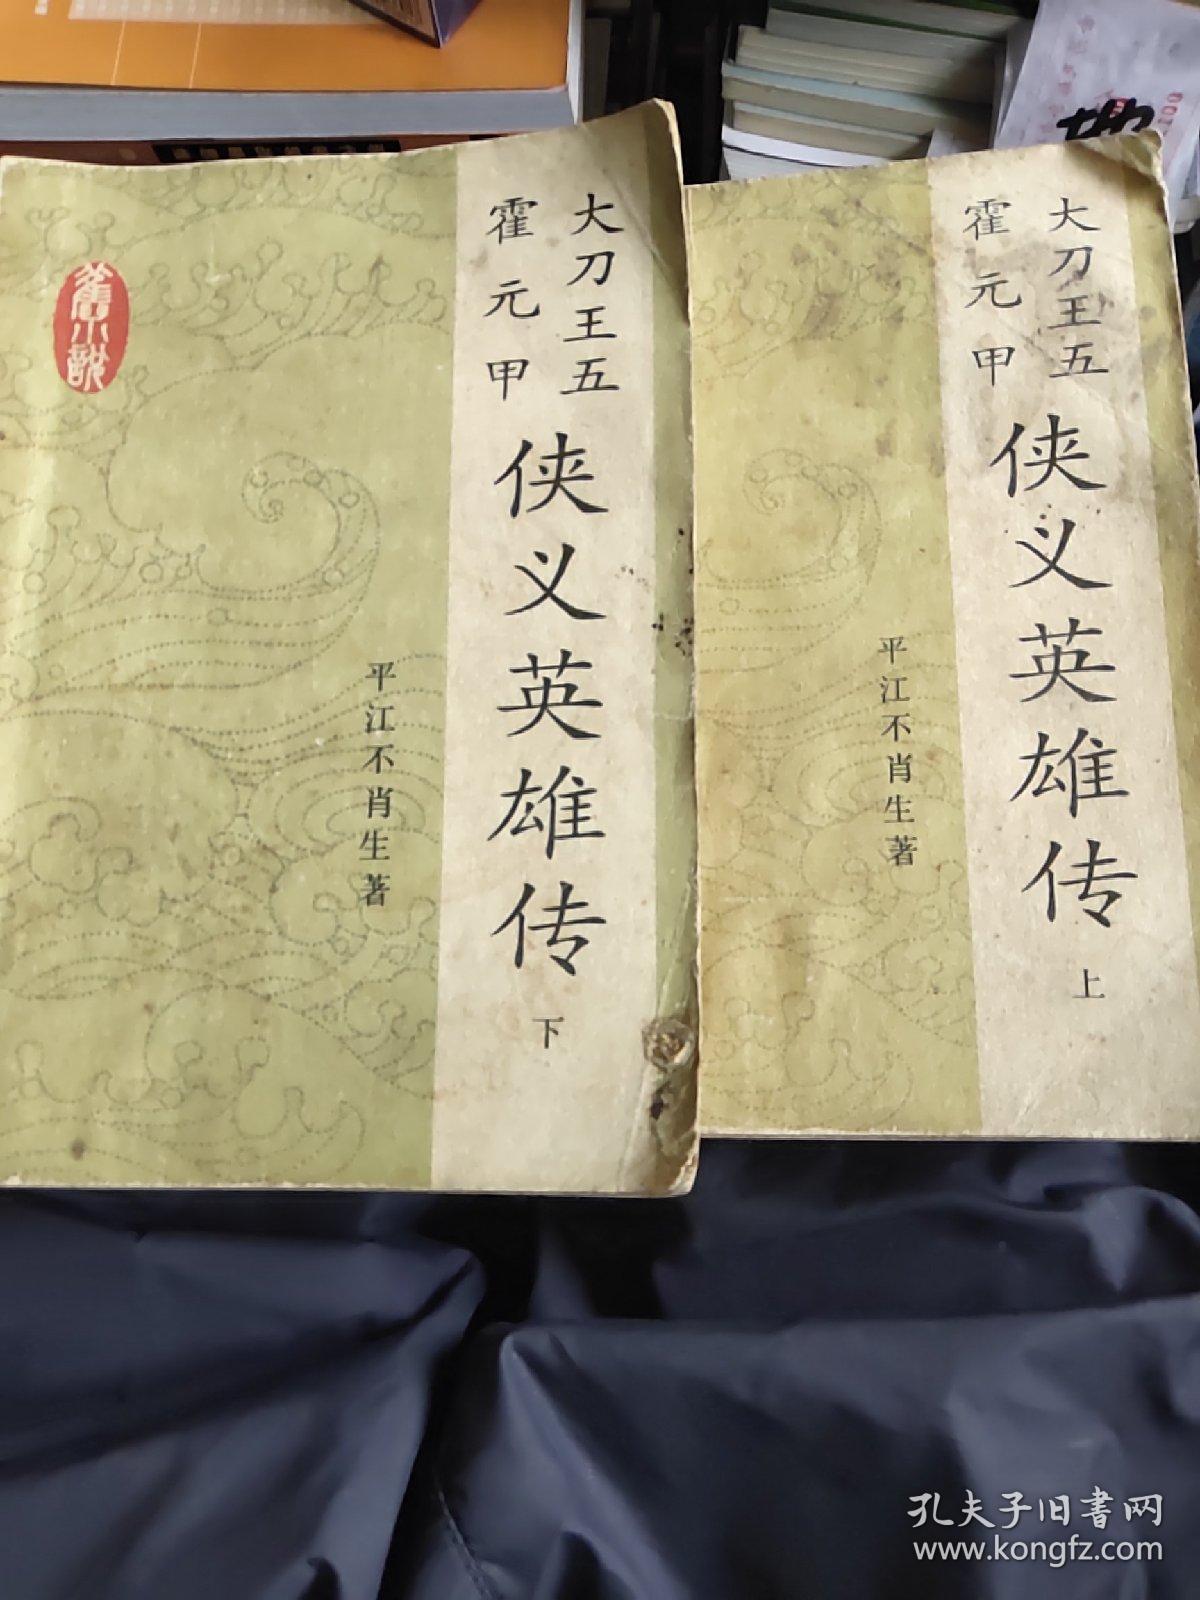 大刀王五
霍元甲
侠义英雄传
下
平江不肖生著
旧小说
大刀王五
霍元甲
侠义英雄传
上
平江不肖生著
孔夫子旧書网
www.kongfz.com